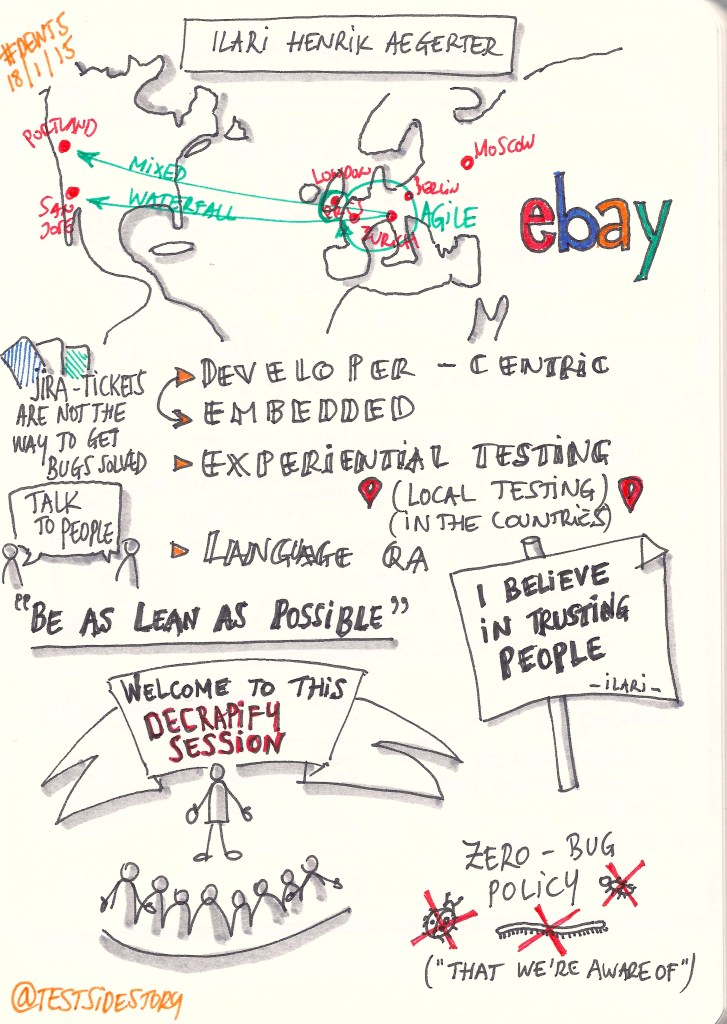 #PENT5
18/1/15
ILARI HENRIK AEGERTER
PORTLAND
SAN
JOSE
MIXED
WATERFALL
LONDON
BERLIN
MOSCOW
ZURICH
AGILE
ebay
JIRA-TICKETS
ARE NOT THE
WAY TO GET
BUGS SOLVED
TALK
TO PEOPLE
DEVELOPER - CENTRIC
EMBEDDED
EXPERIENTIAL TESTING
(LOCAL TESTING)
(IN THE COUNTRIES)
LANGUAGE QA
"BE AS LEAN AS POSSIBLE"
I BELIEVE
IN TRUSTING
PEOPLE
- ILARI -
WELCOME TO THIS
DECRAPIFY
SESSION
ZERO - BUG
POLICY
("THAT WE'RE AWARE OF")
@TESTSIDESTORY